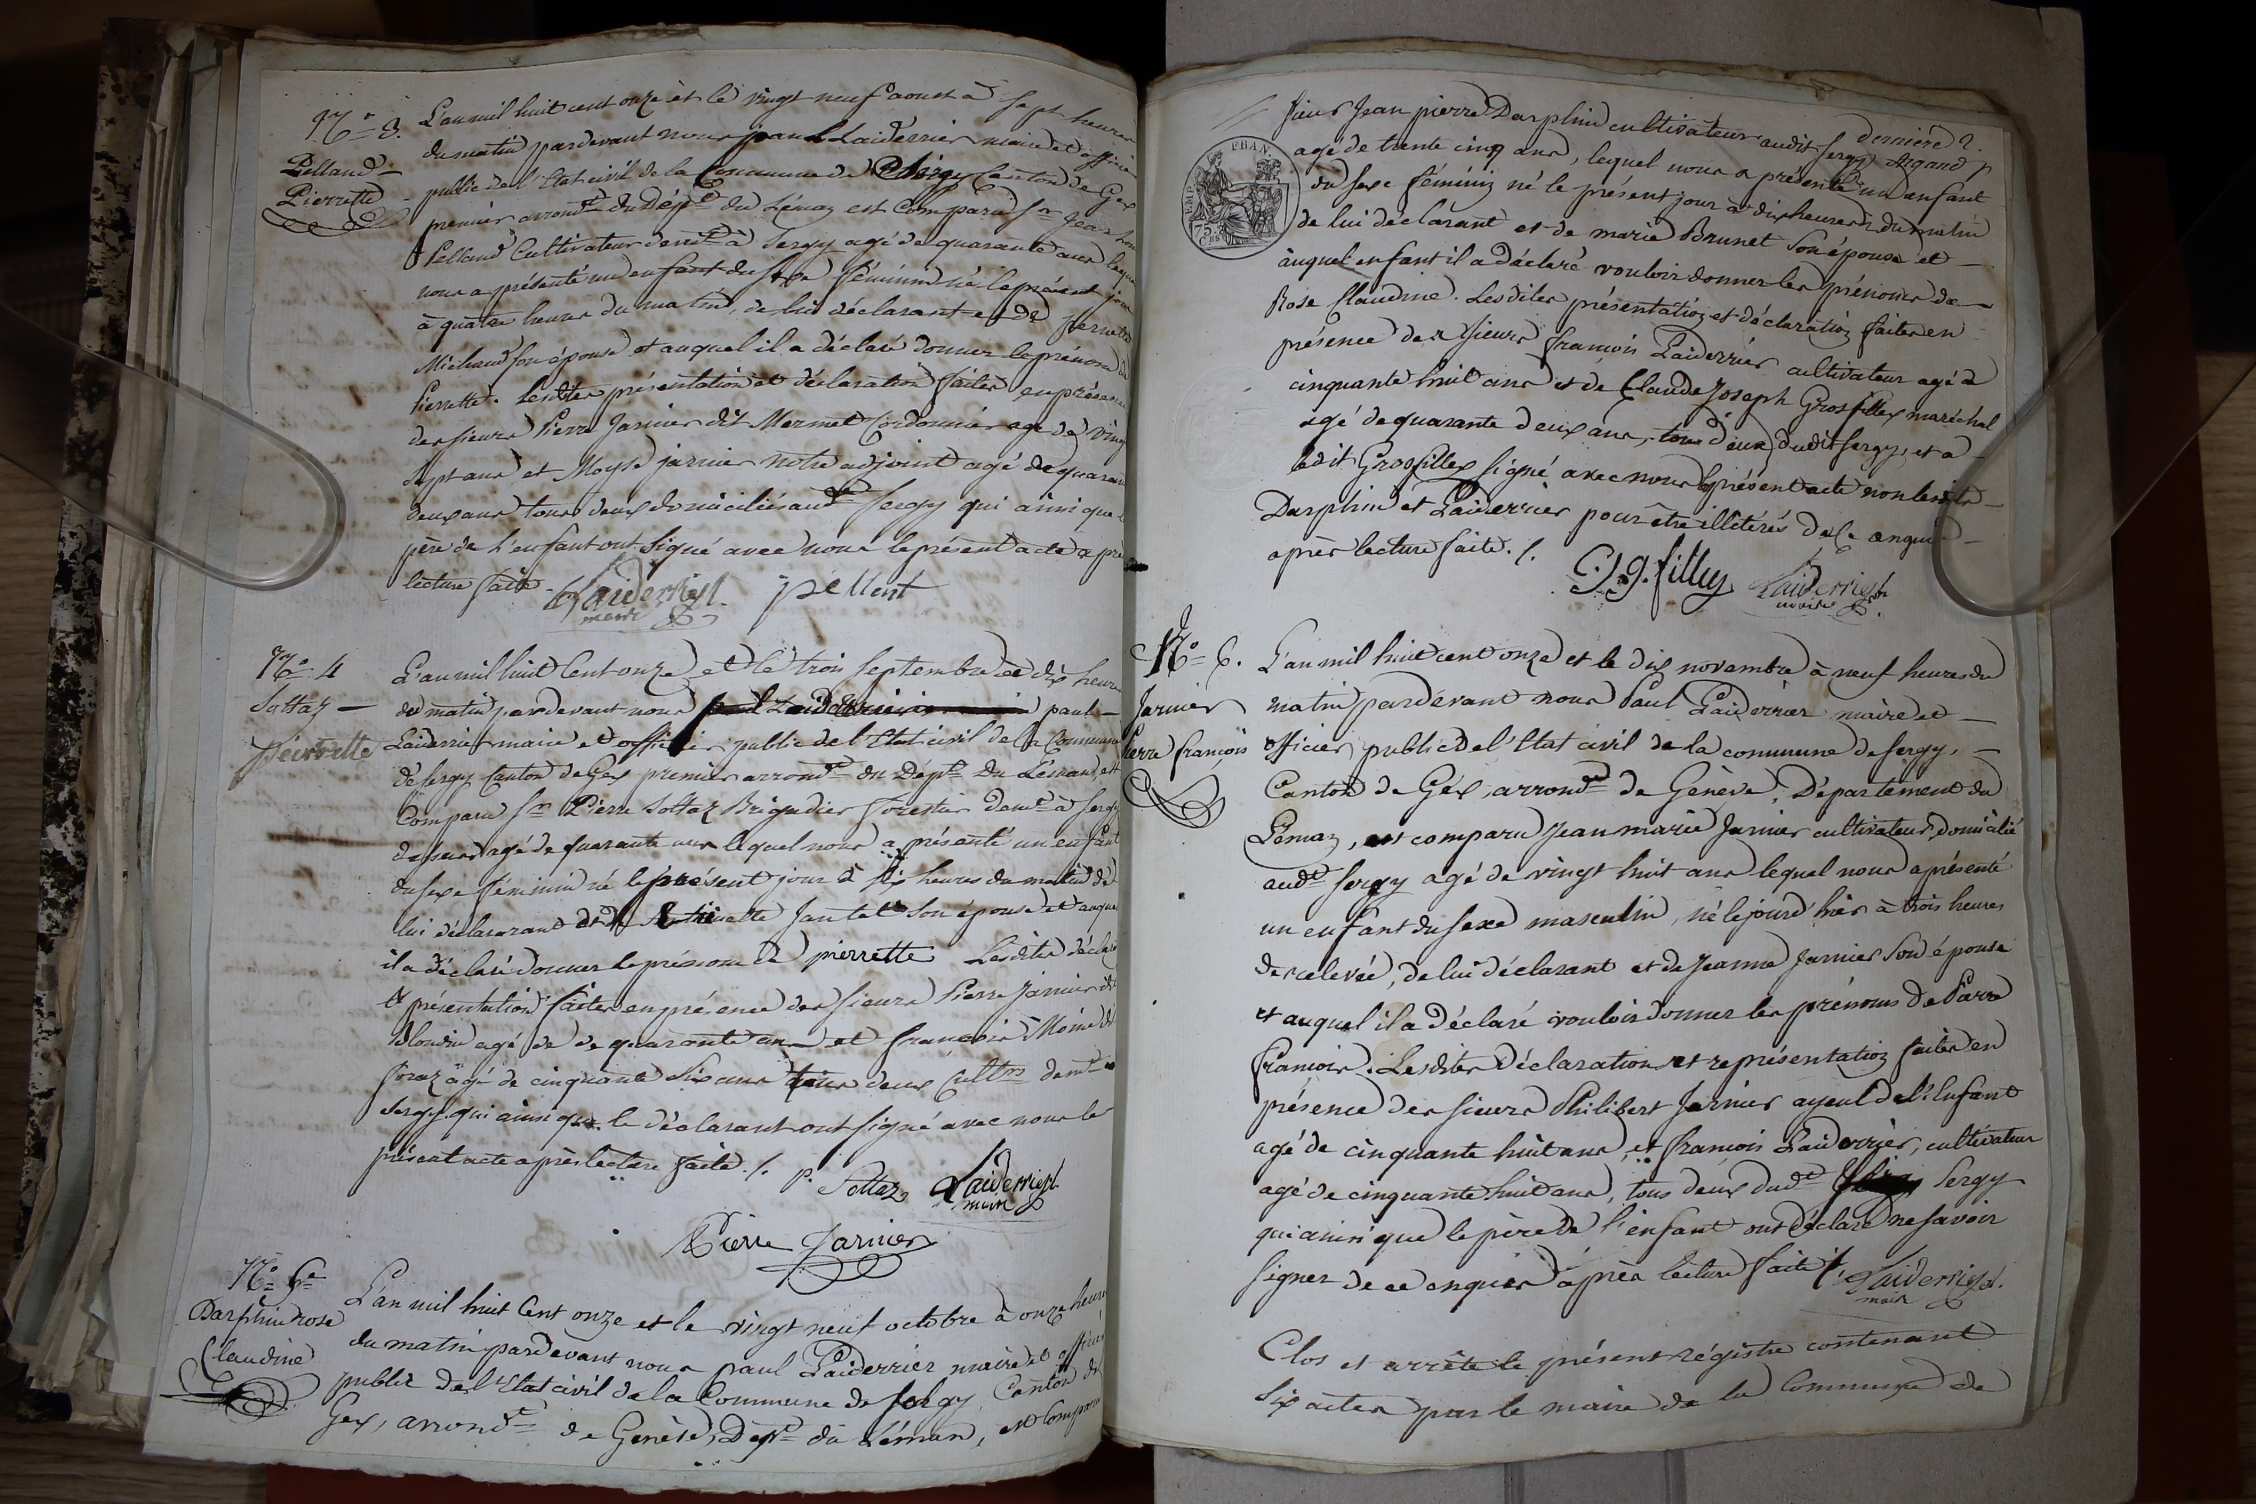 N.o 3.
Pelland
Pierrette
L'an mil huit cent onze et le vingt neuf aoust à sept heures
du matin pardevant nous paul Laiderrier maire et officier
public de l'Etat civil de la Commune de Sergy Canton de Gex
premier arrondt du Dépt du Léman est Comparu Sr Jean
Pelland Cultivateur demt à Sergy agé de quarante ans lequel
nous a présenté un enfant du sexe féminin né le présent jour
à quatre heures du matin, de lui déclarant et de pernette
Michaud son épouse et auquel il a déclaré donner le prénom de
Pierrette. Lesdites présentation et déclaration faites en présence
des sieurs Pierre Jarnier dit Mermet Cordonnier agé de vingt
sept ans et Moyse jarnier notre adjoint agé de quarante
deux ans tous deux domiciliés audt Sergy qui ainsi que le
père de l'enfant ont signé avec nous le présent acte après
lecture faite.
Laiderrier
maire
pellent
N.o 4
Sottaz
pierrette
L'an mil huit Cent onze et le trois septembre à dix heures
du matin pardevant nous paul
Laiderrier maire et officier public de l'Etat civil de la Commune
de Sergy Canton de Gex premier arrondt du Dépt du Léman, est
Comparu Sr Pierre Sottaz Brigadier forestier demt à Sergy
dessus agé de quarante ans lequel nous a présenté un enfant
du sexe féminin né le présent jour à six heures du matin de
lui déclarant et de Jantet son épouse et auquel
il a déclaré donner le prénom de pierrette Lesdites déclaration
et présentation faites en présence des sieurs Pierre Jarnier dit
Blondin agé de de quarante ans et françois Moine dit
foraz agé de cinquante six ans tous deux Cultrs demt à
Sergy qui ainsi que le déclarant ont signé avec nous le
présent acte après lecture faite ./.
P. Sottaz
Laiderrier
maire
Pierre Jarnier
N.o 5e
Darphin rose
Claudine
L'an mil huit Cent onze et le vingt neuf octobre à onze heures
du matin pardevant nous paul Laiderrier maire et officier
public de l'Etat civil de la Commune de Sergy Canton de
Gex, arrondt de Genève, Dépt du Léman, est Comparu
dernière 2.
Argand p
sieur Jean pierre Darphin cultivateur audit Sergy
agé de trente cinq ans, lequel nous a présenté un enfant
du sexe féminin né le présent jour à dix heures du matin
de lui déclarant et de marie Brunet son épouse et
auquel enfant il a déclaré vouloir donner les prénoms de
Rose Claudine. Lesdites présentation et déclaration faites en
présence des sieurs françois Laiderrier cultivateur agé de
cinquante huit ans et de Claude Joseph Grosfillex maréchal
agé de quarante deux ans, tous deux dudit Sergy, et a
ledit Grosfillex signé avec nous le présent acte non lesdits
Darphin et Laiderrier pour être illitérés de ce enquis
après lecture faite ./.
EMP. FRAN.
75 Cns
C. J. g. fillex
Laiderrier
maire
N.o 6.
Jarnier
Pierre françois
L'an mil huit cent onze et le dix novembre à neuf heures du
matin pardevant nous Paul Laiderrier maire et
officier public de l'Etat civil de la commune de Sergy,
Canton de Gex, arrondt de Genève, Département du
Léman, est comparu Jean marie Jarnier cultivateur domicilié
audt Sergy agé de vingt huit ans lequel nous a présenté
un enfant du sexe masculin, né le jour d'hier à trois heures
de relevée, de lui déclarant et de Jeanne Jarnier son épouse
et auquel il a déclaré vouloir donner les prénoms de Pierre
françois. Lesdites déclaration et représentation faites en
présence des sieurs Philibert Jarnier ayeul de l'Enfant
agé de cinquante huit ans, et françois Laiderrier, cultivateur
agé de cinquante huit ans, tous deux dudt Sergy
qui ainsi que le père de l'enfant ont déclaré ne savoir
signer de ce enquis après lecture faite ./.
Laiderrier
maire
Clos et arrêté le présent régistre contenant
six actes par le maire de la Commune de